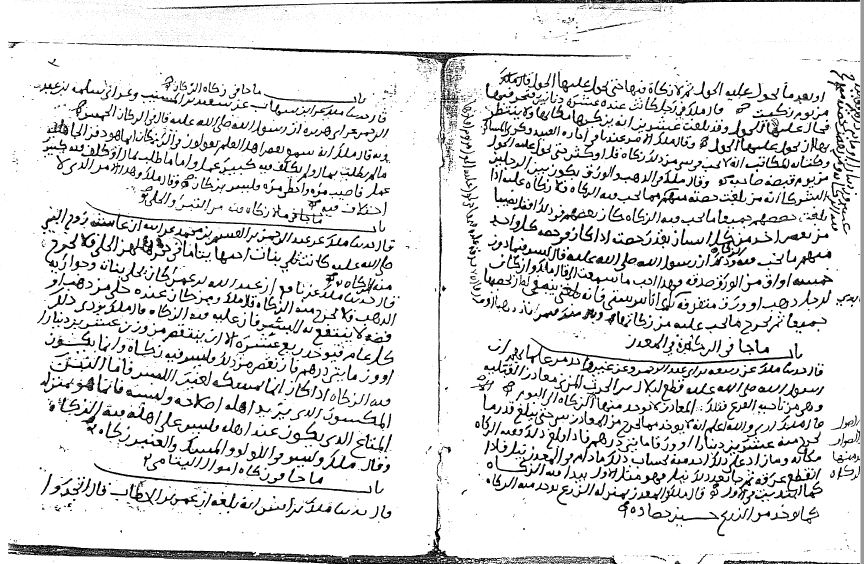 او بعد ما يحول عليه الحول ثم لا زكاة فيها حتى يحول عليها الحول
من يوم زكيت قال ملك في رجل كانت عنده عشرة دنانير فتجر فيها
فحال عليها الحول وقد بلغت عشرين انه يزكيها مكانها ولا ينتظر
بها ان يحول عليها الحول قال ملك الامر عندنا في اجارة العبيد وكرى المساكن
وكتابة المكاتب انه لا تجب في شي من ذلك زكاة قل او كثر حتى يحول عليه الحول
من يوم قبضه صاحبه وقال ملك في الذهب والورق يكون بين الرجلين
الشركا انه من بلغت حصته منهم ما تجب فيه الزكاة فلا زكاة عليه اذا
بلغت حصصهم جميعا ما تجب فيه الزكاة كان بعضهم في ذلك افضل نصيبا
من بعض اخذ من كل انسان بقدر حصته اذا كان في حصة كل واحد
منهم ما تجب فيه الزكاة وذلك ان رسول الله صلى الله عليه قال ليس فيما دون
خمسة اواق من الورق صدقة وهذا احب ما سمعت الي قال ملك واذا كانت
لرجل ذهب او ورق متفرقة بايدي اناس شتى فانه ينبغي له ان يحصيها
جميعا ثم يخرج ما تجب عليه من زكاتها
باب ما جا في الزكاة في المعدن
قال حدثنا ملك عن ربيعة بن ابي عبد الرحمن عن غير واحد من علمائهم ان
رسول الله صلى الله عليه قطع لبلال بن الحرث المزني معادن القبلية
وهي من ناحية الفرع فتلك المعادن لا يوخذ منها الا الزكاة الى اليوم
قال ملك ارى والله اعلم انه لا يوخذ مما يخرج من المعادن شي حتى يبلغ قدر ما
يخرج منه عشرين دينارا او قدر مايتي درهم فاذا بلغ ذلك ففيه الزكاة
مكانه وما زاد على ذلك اخذ منه بحساب ذلك ما دام في المعدن نيل فاذا
انقطع عرقه ثم جا بعد ذلك نيل فهو مثل الاول يبتدا فيه الزكاة
كما ابتديت في الاول قال ملك والمعدن بمنزلة الزرع يوخذ منه الزكاة
كما يوخذ من الزرع حين حصاده
باب ما جا في زكاة الركاز
قال حدثنا ملك عن ابن شهاب عن سعيد بن المسيب وعن ابي سلمة بن عبد
الرحمن عن ابي هريرة ان رسول الله صلى الله عليه قال في الركاز الخمس
قال ملك انه سمع بعض اهل العلم يقولون في الركاز انما هو دفن الجاهلية
ما لم يطلب بمال ولم يتكلف فيه كبير عمل واما ما طلب بمال او تكلف فيه كبير
عمل فاصيب مرة واخطي مرة فليس بركاز قال ملك وهذا الامر الذي لا
اختلاف فيه
باب ما جا في ما لا زكاة فيه من التبر والحلي
قال حدثنا ملك عن عبد الرحمن بن القسم عن ابيه ان عايشة زوج النبي
صلى الله عليه كانت تلي بنات اخيها يتامى في حجرها لهن الحلي فلا تخرج
منه الزكاة
قال حدثنا ملك عن نافع ان عبد الله بن عمر كان يحلي بناته وجواريه
الذهب فلا يخرج منه الزكاة قال ملك ومن كان عنده حلي من ذهب او
فضة لا ينتفع به للبس فان عليه فيه الزكاة قال ملك يوزن ذلك
كل عام فيوخذ ربع عشره الا ان ينقص من وزن عشرين دينارا
او وزن مايتي درهم فان نقص من ذلك فليس فيه زكاة وانما تكون
فيه الزكاة اذا كان انما يمسكه لغير اللبس فاما التبر
المكسور الذي يريد اهله اصلاحه ولبسه فانما هو بمنزلة
المتاع الذي يكون عند اهله فليس على اهله فيه الزكاة
وقال ملك وليس في اللولو والمسك والعنبر زكاة
باب ما جا في زكاة اموال اليتامى
قال حدثنا ملك بن انس انه بلغه ان عمر بن الخطاب قال اتجروا